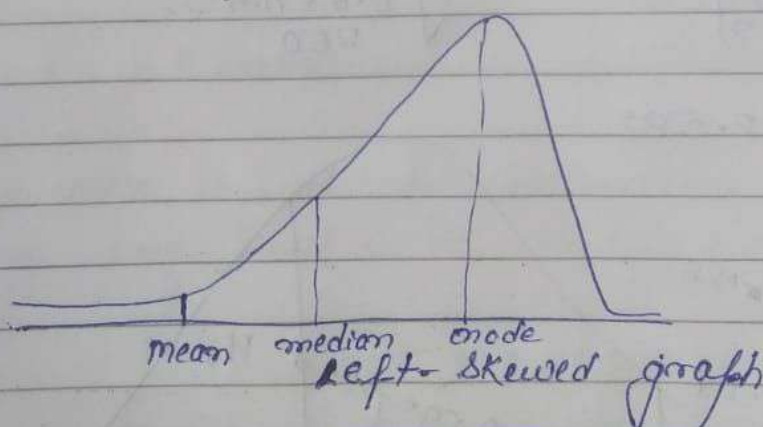 mean median mode
Left- Skewed graph